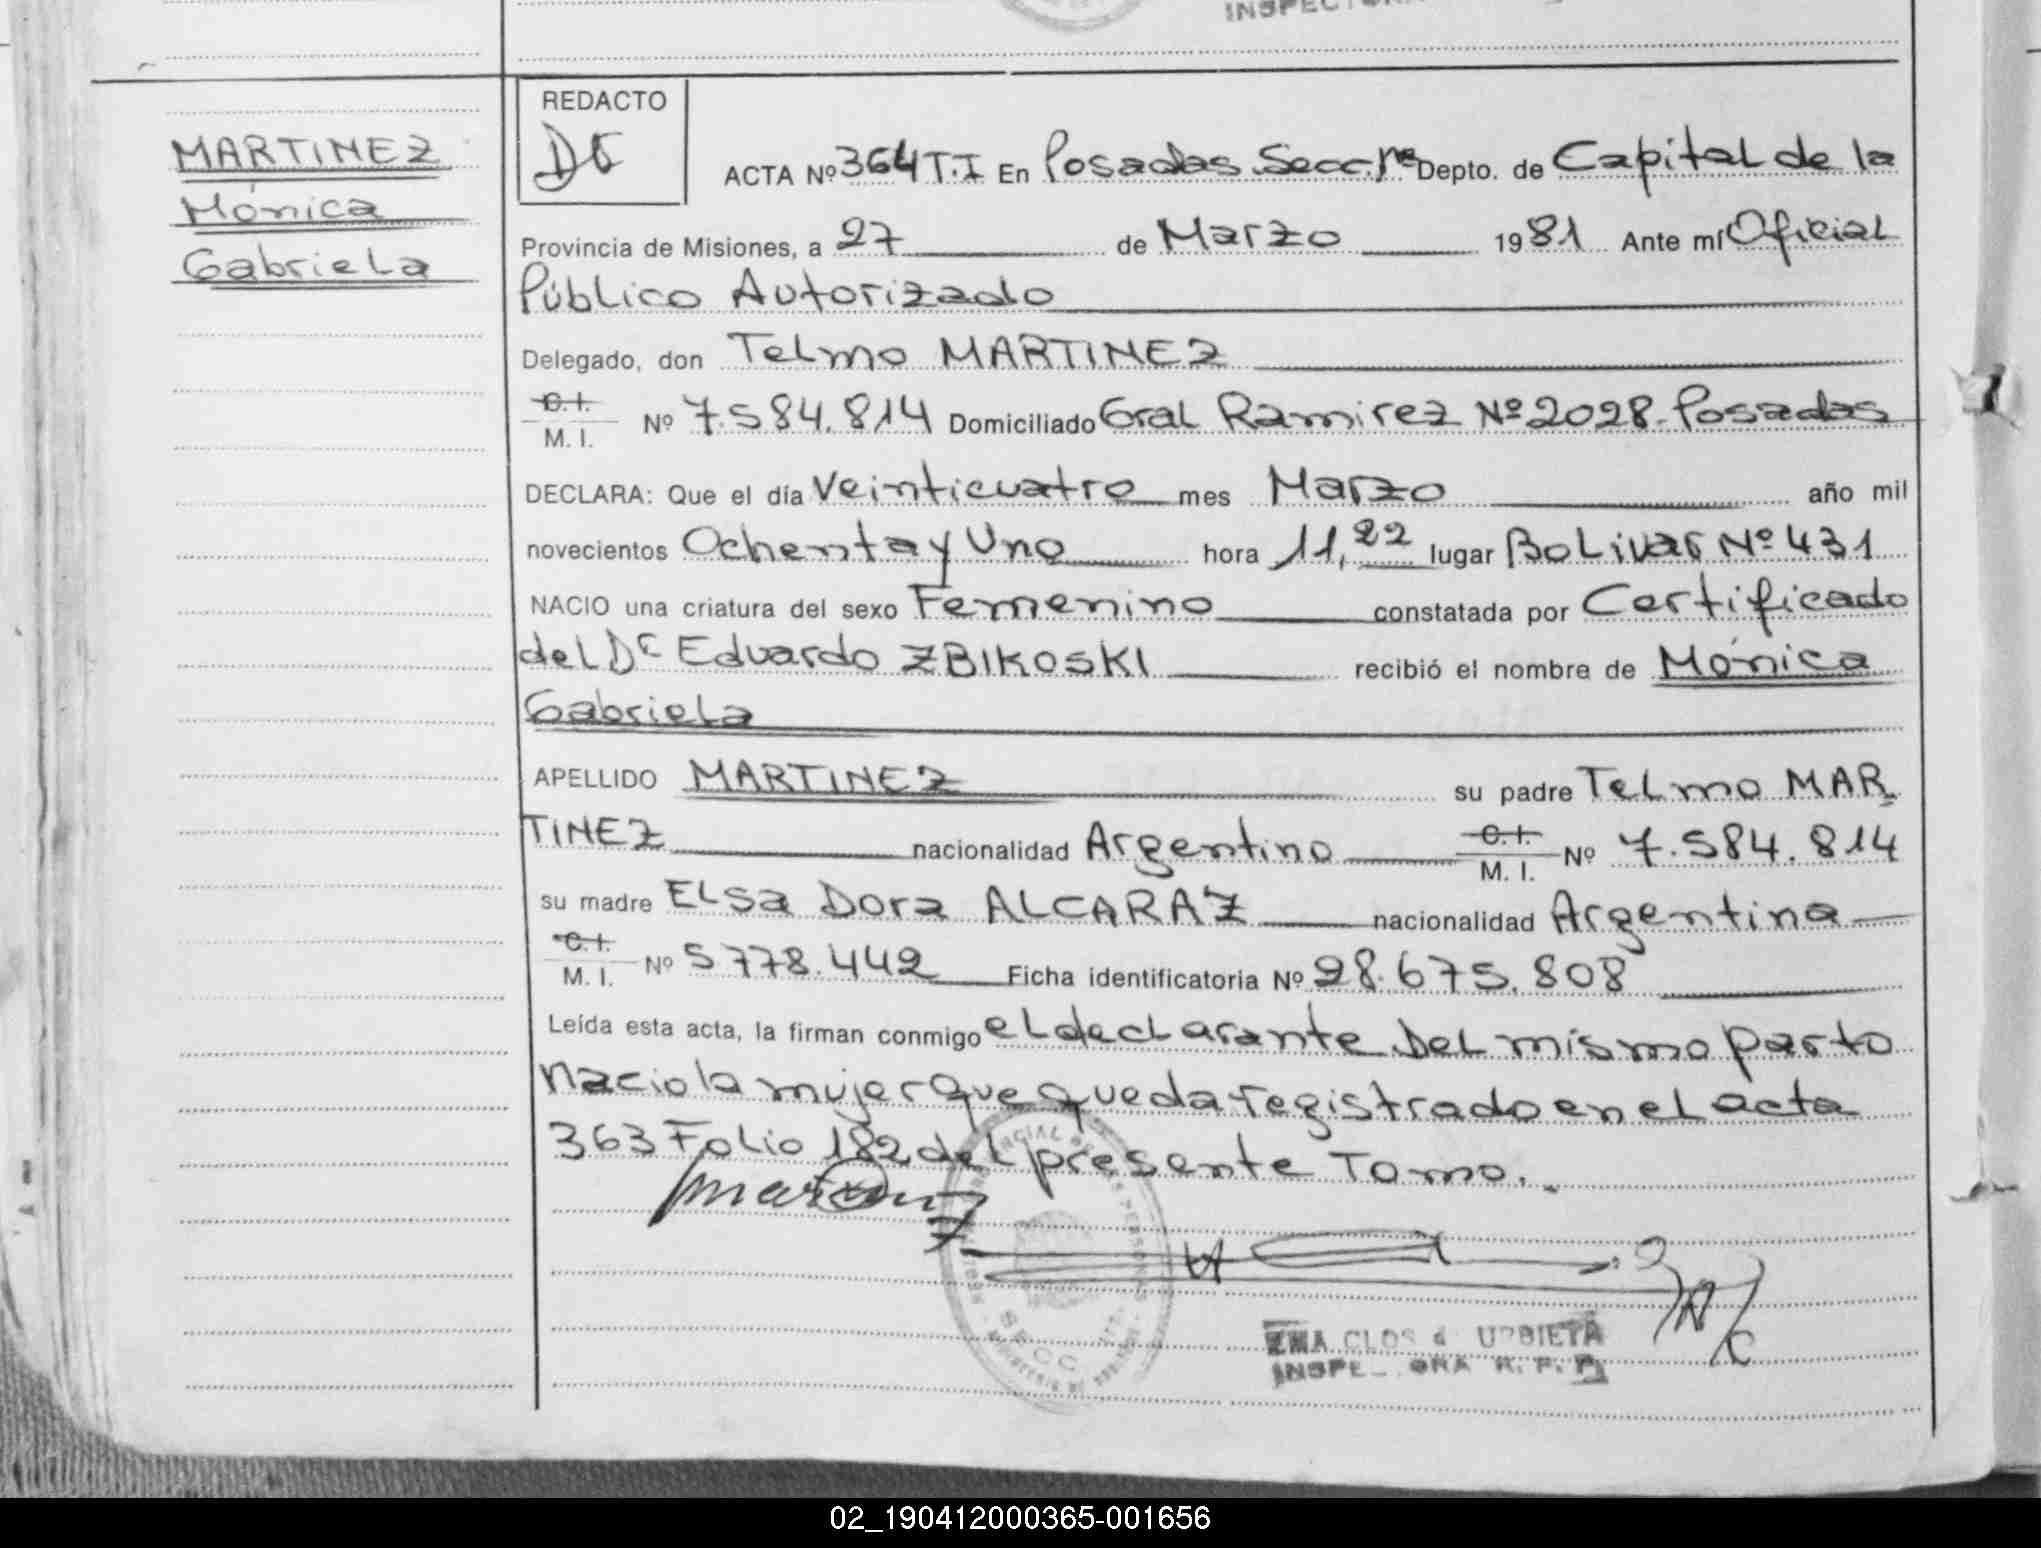 INSPECTORA
MARTINEZ
Mónica
Gabriela
REDACTO
ACTA Nº 364 T.I En Posadas Secc. 1ra Depto. de Capital de la
Provincia de Misiones, a 27 de Marzo 1981 Ante mí Oficial
Público Autorizado
Delegado, don Telmo MARTINEZ
C.I.
M. I. Nº 7.584.814 Domiciliado Gral Ramirez Nº 2028 - Posadas
DECLARA: Que el día Veinticuatro mes Marzo año mil
novecientos Ochenta y Uno hora 11,22 lugar Bolivar Nº 431
NACIO una criatura del sexo Femenino constatada por Certificado
del Dr Eduardo ZBIKOSKI recibió el nombre de Mónica
Gabriela
APELLIDO MARTINEZ su padre Telmo MAR
TINEZ nacionalidad Argentino C.I. M. I. Nº 7.584.814
su madre Elsa Dora ALCARAZ nacionalidad Argentina
C.I.
M. I. Nº 5778.442 Ficha identificatoria Nº 28.675.808
Leída esta acta, la firman conmigo el declarante Del mismo parto
nacio la mujer que queda registrado en el acta
363 Folio 182 del presente Tomo.
URBIETA
R. P. P.
02_190412000365-001656